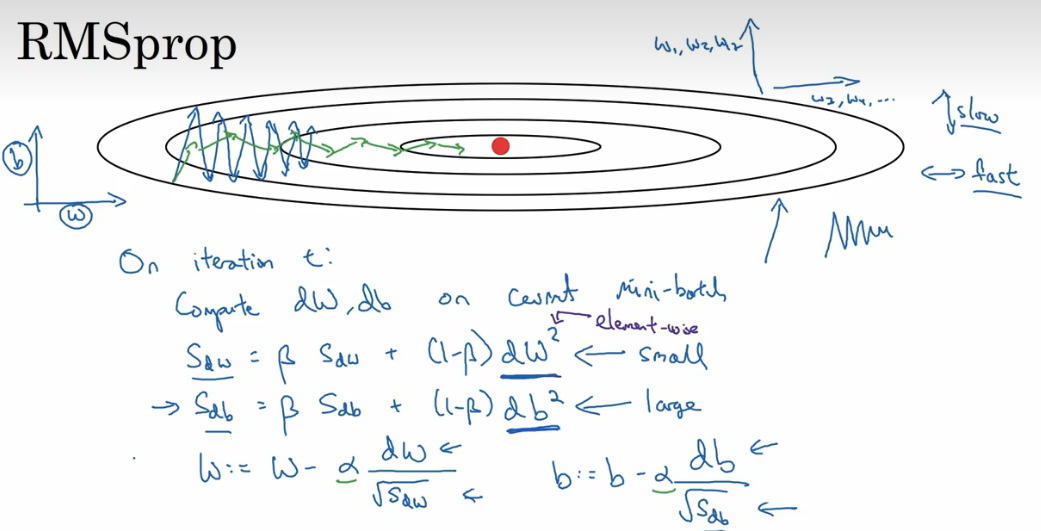 RMSprop
w₁, w₂, w₂
w₃, w₄, ...
↕ slow
↔ fast
b
w
On iteration t:
Compute dW, db on current mini-batch
element-wise
S_dw = β S_dw + (1-β) dW² ← small
→ S_db = β S_db + (1-β) db² ← large
W := W - α dW/√S_dw ← ←
b := b - α db/√S_db ← ←